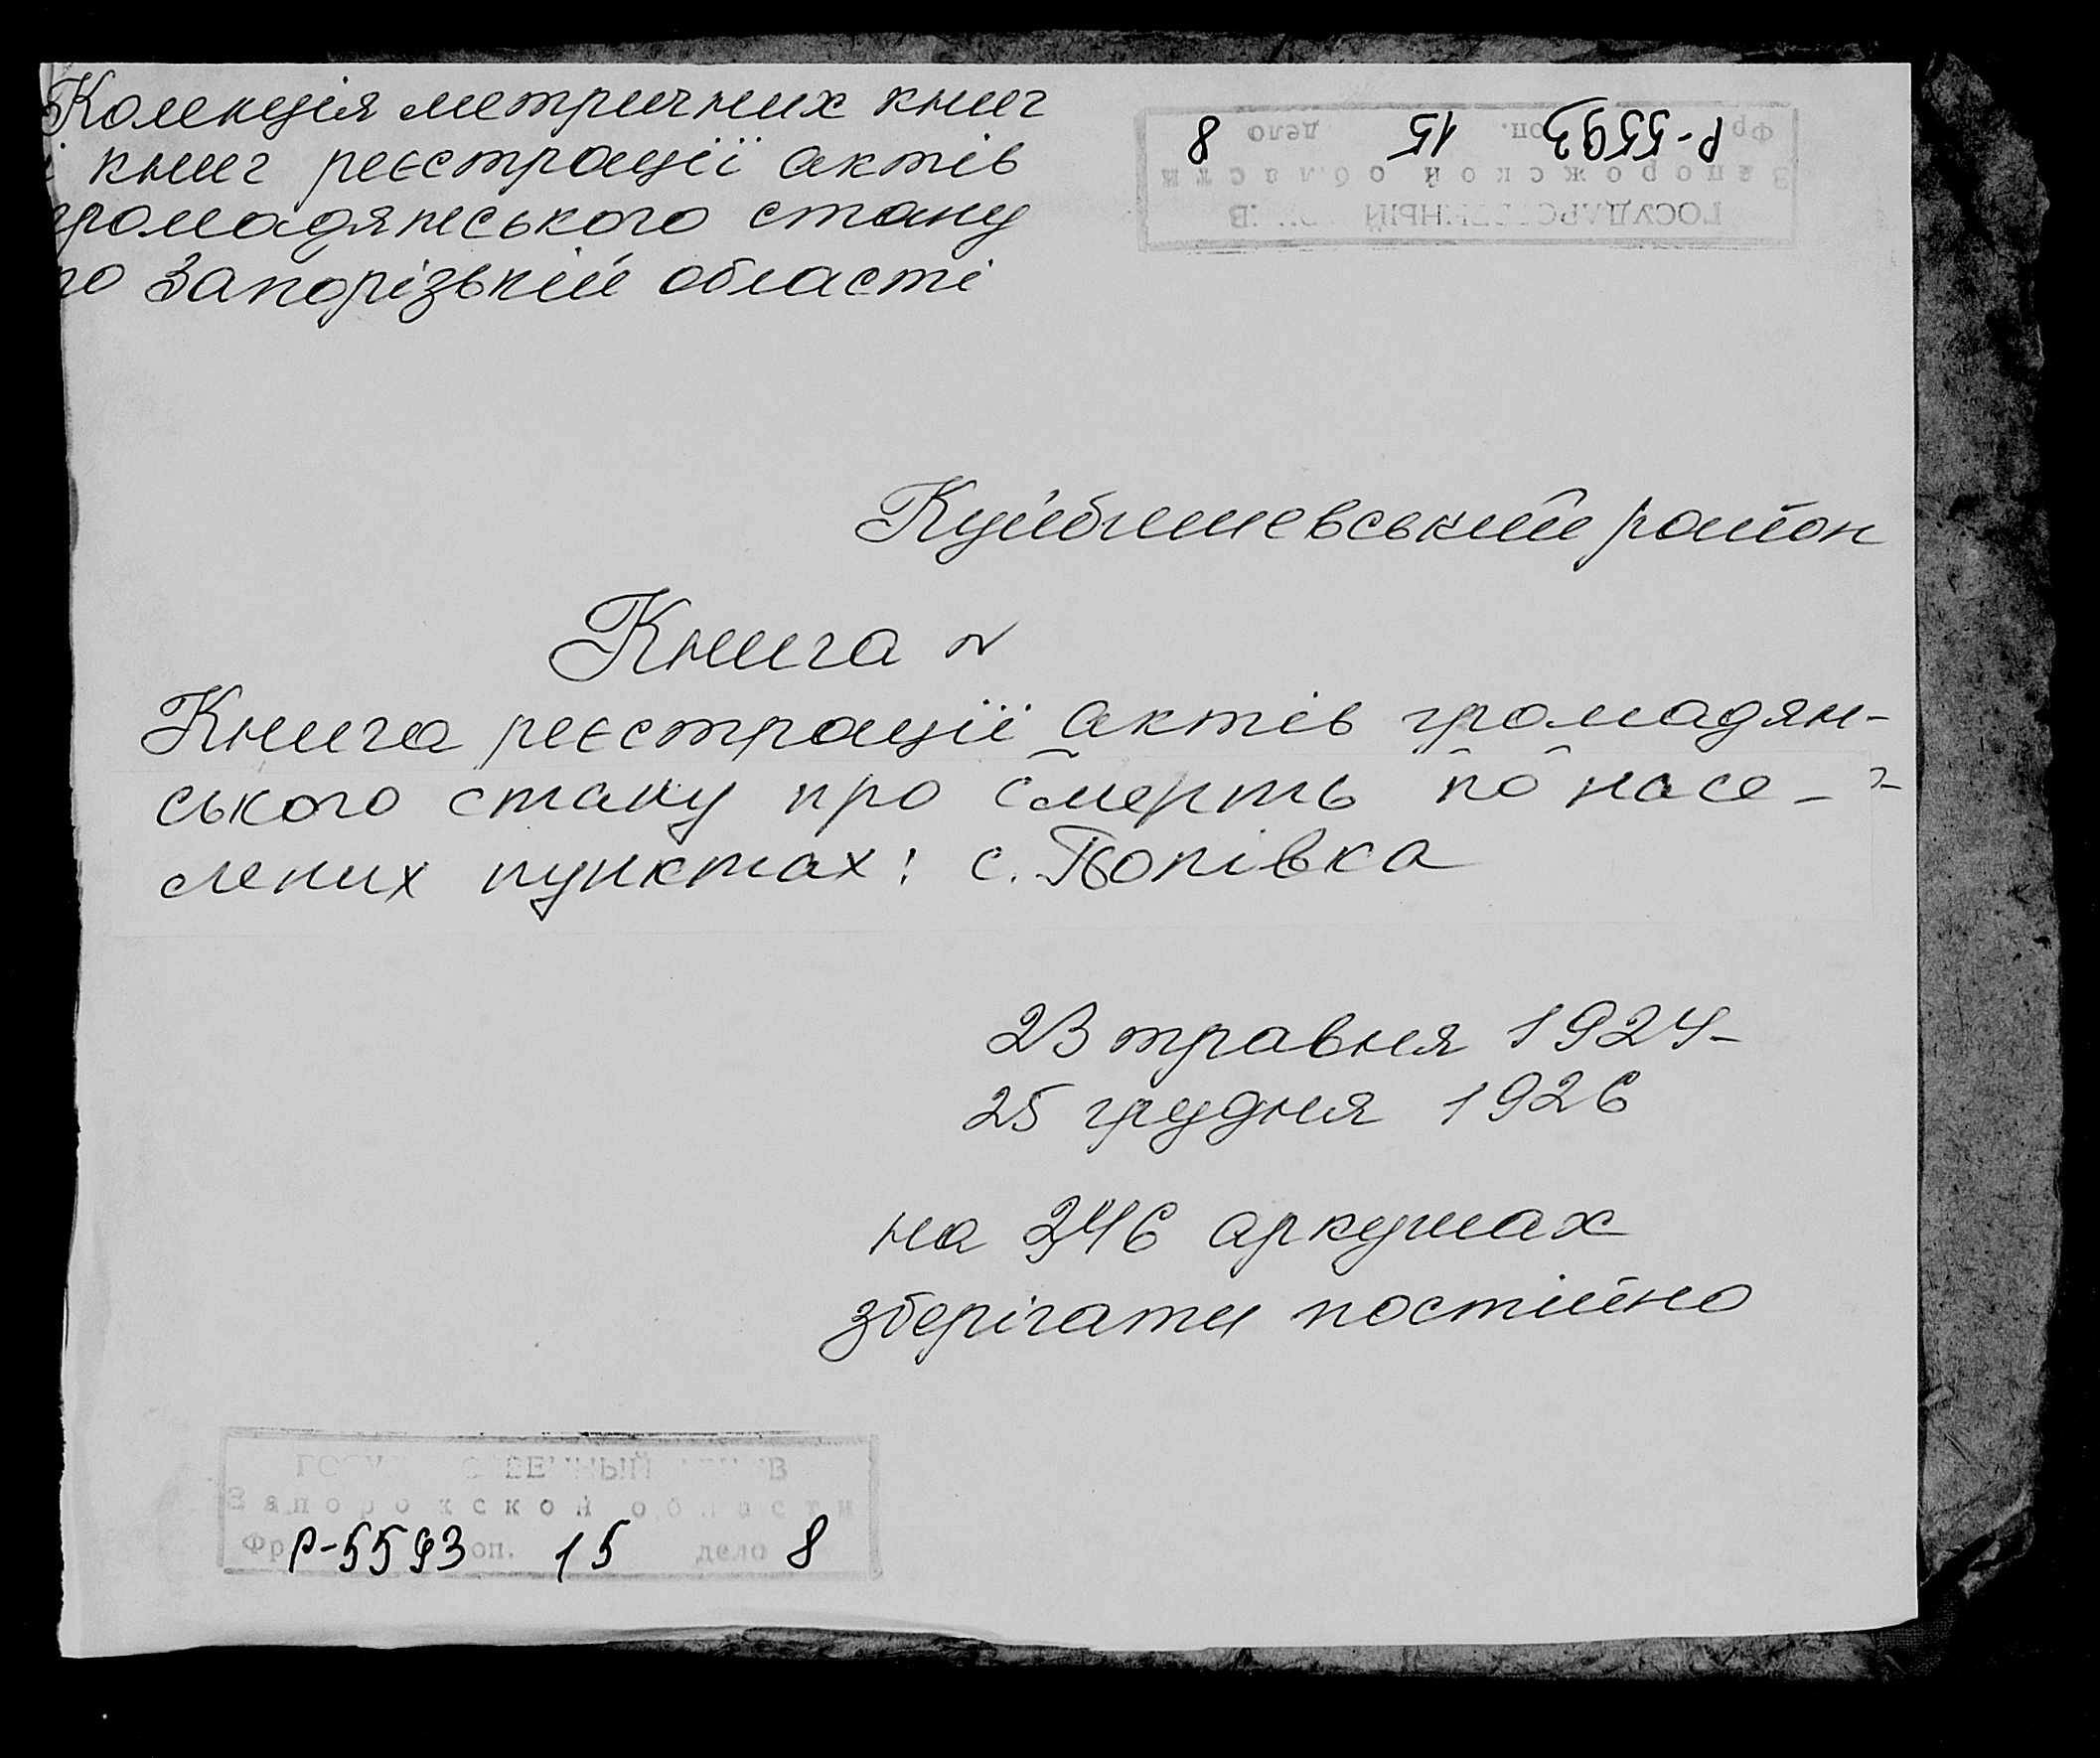 Колекція метричних книг
і книг реєстрації актів
громадянського стану
по Запорізькій області
Р-5593 оп. 15 дело 8
Запорожской области
ГОСУДАРСТВЕННЫЙ
Куйбишевський район
Книга №
Книга реєстрації актів громадян-
ського стану про смерть по насе-
лених пунктах: с. Попівка
23 травня 1924-
25 грудня 1926
на 246 аркушах
зберігати постійно
Запорожской области
Фр Р-5593 оп. 15 дело 8